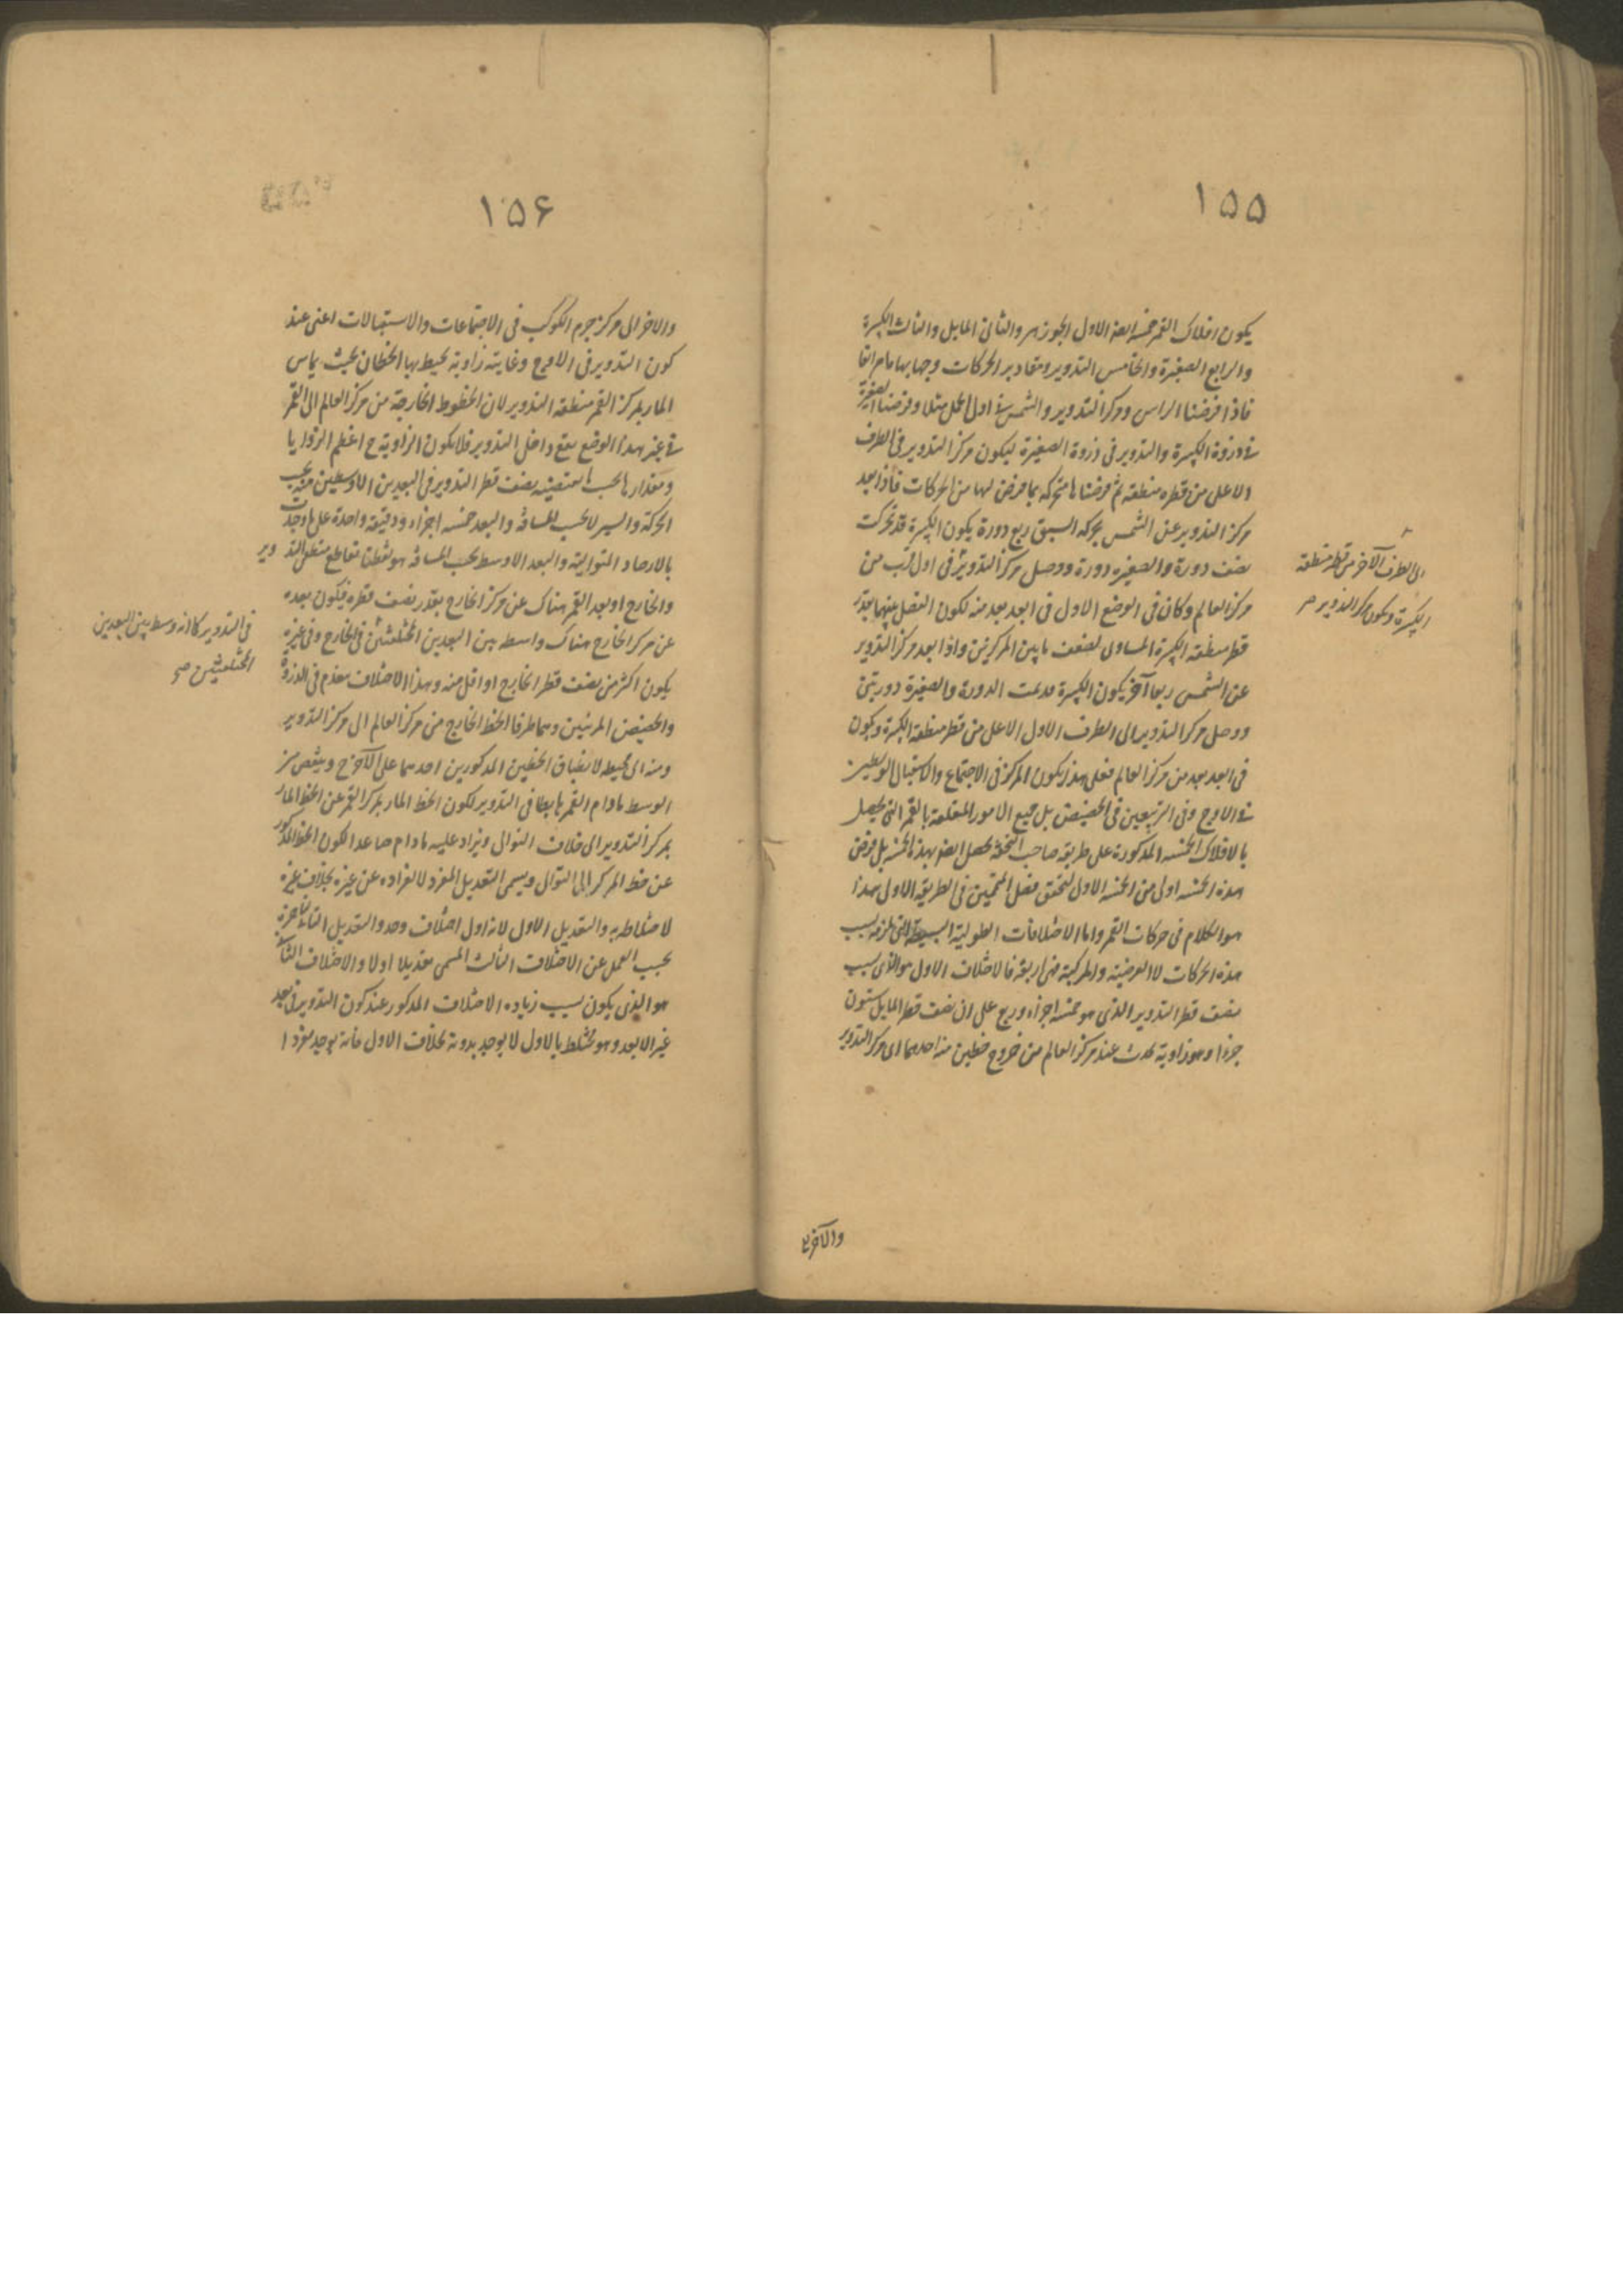 ١٥٥
يكون افلاك القمر خمسة ايضا الاول الجوزهر والثانى المايل والثالث الكبيرة
والرابع الصغيرة والخامس التدوير ومقادير الحركات وجهاتها ما مر آنفا
فاذا فرضنا الراس ومركز التدوير والشمس فى اول الحمل مثلا وفرضنا الصغيرة
فى ذروة الكبيرة والتدوير فى ذروة الصغيرة ليكون مركز التدوير فى الطرف
الاعلى من قطره منطقة ثم فرضناها متحركة بما فرض لها من الحركات فاذا بعد
مركز التدوير عن الشمس بحركة السبق ربع دورة يكون الكبيرة قد تحركت
نصف دورة والصغيرة دورة ووصل مركز التدوير فى اول قرب من
الى الطرف الآخر من قطر منطقة
الكبيرة ويكون مركز التدوير صح
مركز العالم وكان فى الوضع الاول فى ابعد بعد منه لكون الفصل بينهما بقدر
قطر منطقة الكبيرة المساوى لضعف ما بين المركزين واذا بعد مركز التدوير
عن الشمس ربعا آخر يكون الكبيرة قد تمت الدورة والصغيرة دورتين
ووصل مركز التدوير الى الطرف الاول الاعلى من قطر منطقة الكبيرة ويكون
فى ابعد بعد من مركز العالم فعلى هذا يكون المركز فى الاجتماع والاستقبال الوسطين
فى الاوج وفى التربيعين فى الحضيض بل جميع الامور المتعلقة بالقمر التى يحصل
بالافلاك الخمسة المذكورة على طريقة صاحب التحفة يحصل ايضا بهذه الخمسة بل فرض
هذه الخمسة اولى من الخمسة الاول لتحقق فضل المتممين فى الطريقة الاولى هذا
هو الكلام فى حركات القمر واما الاختلافات الطولية البسيطة التى تلزمه بسبب
هذه الحركات لا العرضية والمركبة فهى اربعة فالاختلاف الاول هو الذى بسبب
نصف قطر التدوير الذى هو خمسة اجزاء وربع على ان نصف قطر المايل ستون
جزءا وهو زاوية تحدث عند مركز العالم من خروج خطين منه احدهما الى مركز التدوير
والآخر
١٥۶
والاخر الى مركز جرم الكوكب فى الاجتماعات والاستقبالات اعنى عند
كون التدوير فى الاوج وغايته زاوية يحيط بها الخطان بحيث يماس
المار بمركز القمر منطقة التدوير لان الخطوط الخارجة من مركز العالم الى القمر
فى غير هذا الوضع يقع داخل التدوير فلا يكون الزاوية ح اعظم الزوايا
ومقدارها بحسب ما يقتضيه نصف قطر التدوير فى البعدين الاوسطين منه بحسب
الحركة والسير لا بحسب المسافة والبعد خمسة اجزاء ودقيقة واحدة على ما وجدت
بالارصاد المتوالية والبعد الاوسط بحسب المسافة هو نقطتا تقاطع منطقة التدوير
والخارج او بعد القمر هناك عن مركز الخارج بقدر نصف قطره فيكون بعده
عن مركز الخارج هناك واسطة بين البعدين المختلفين فى الخارج وفى غيره
فى التدوير كما انه وسط بين البعدين
المختلفين ح صح
يكون اكثر من نصف قطر الخارج او اقل منه وهذا الاختلاف ينعدم فى الذروة
والحضيض المرئيين وهما طرفا الخط الخارج من مركز العالم الى مركز التدوير
ومنه الى محيطه لانطباق الخطين المذكورين احدهما على الآخر ح وينقص من
الوسط ما دام القمر هابطا فى التدوير لكون الخط المار بمركز القمر عن الخط المار
بمركز التدوير الى خلاف التوالى ويزاد عليه ما دام صاعدا لكون الخط المذكور
عن خط المركز الى التوالى ويسمى التعديل المفرد لانفراده عن غيره بخلاف غيره
لاختلاطه به والتعديل الاول لانه اول اختلاف وجد والتعديل الثانى لتاخره
بحسب العمل عن الاختلاف الثالث المسمى تعديلا اولا والاختلاف الثانى
هو الذى يكون بسبب زيادة الاختلاف المذكور عند كون التدوير فى بعد
غير الابعد وهو مختلط بالاول لا يوجد بدونه بخلاف الاول فانه يوجد مفردا